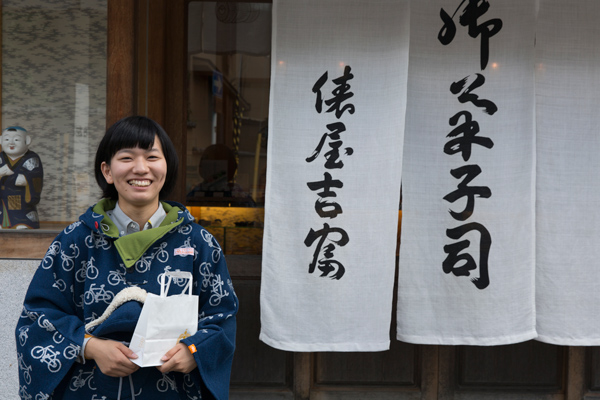 御菓子司
俵屋吉富